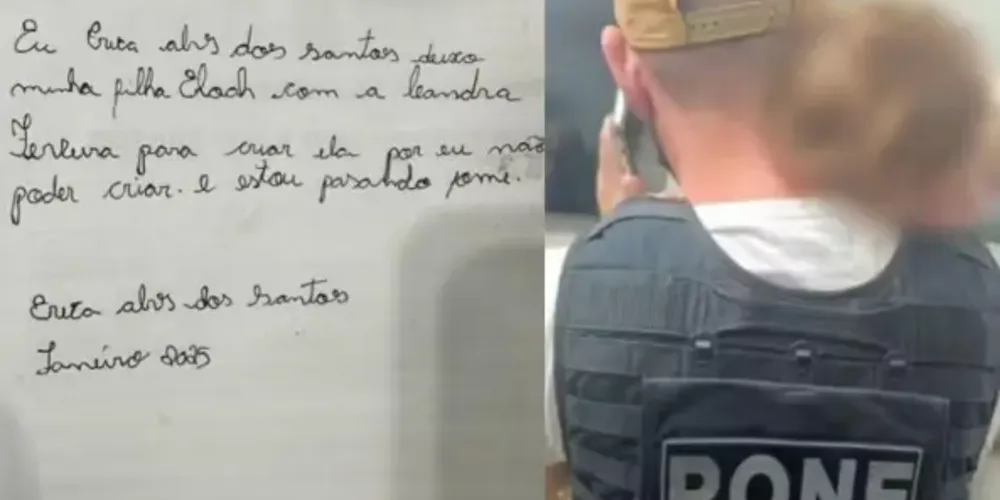 Eu Creta alvs dos santos deixo
minha filha Eloah com a leandra
Ferreura para criar ela por eu não
poder criar. e estou pasando fome.
Creta alvs dos santos
Janeiro 2025
RONE